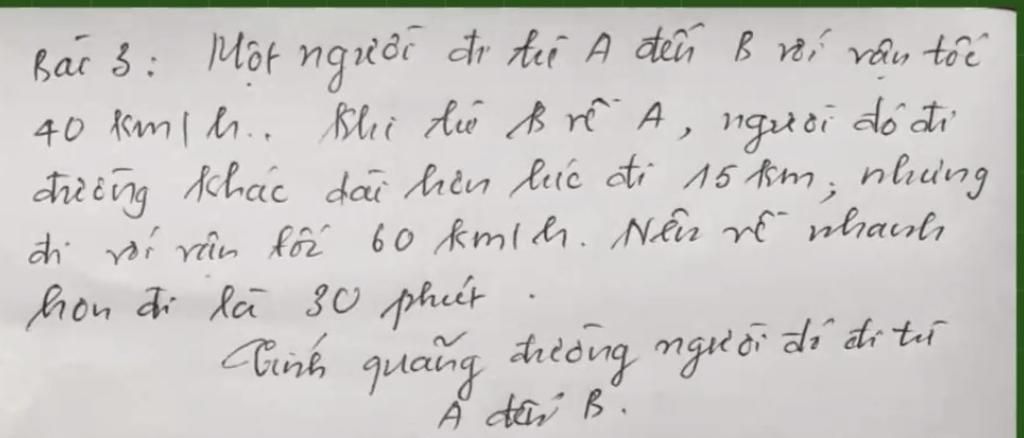 Bài 3: Một người đi từ A đến B với vận tốc
40 km/h.. Khi từ B về A, người đó đi
đường khác dài hơn lúc đi 15 km, nhưng
đi với vân tốc 60 km/h. Nên về nhanh
hơn đi là 30 phút.
Tính quãng đường người đó đi từ
A đến B.